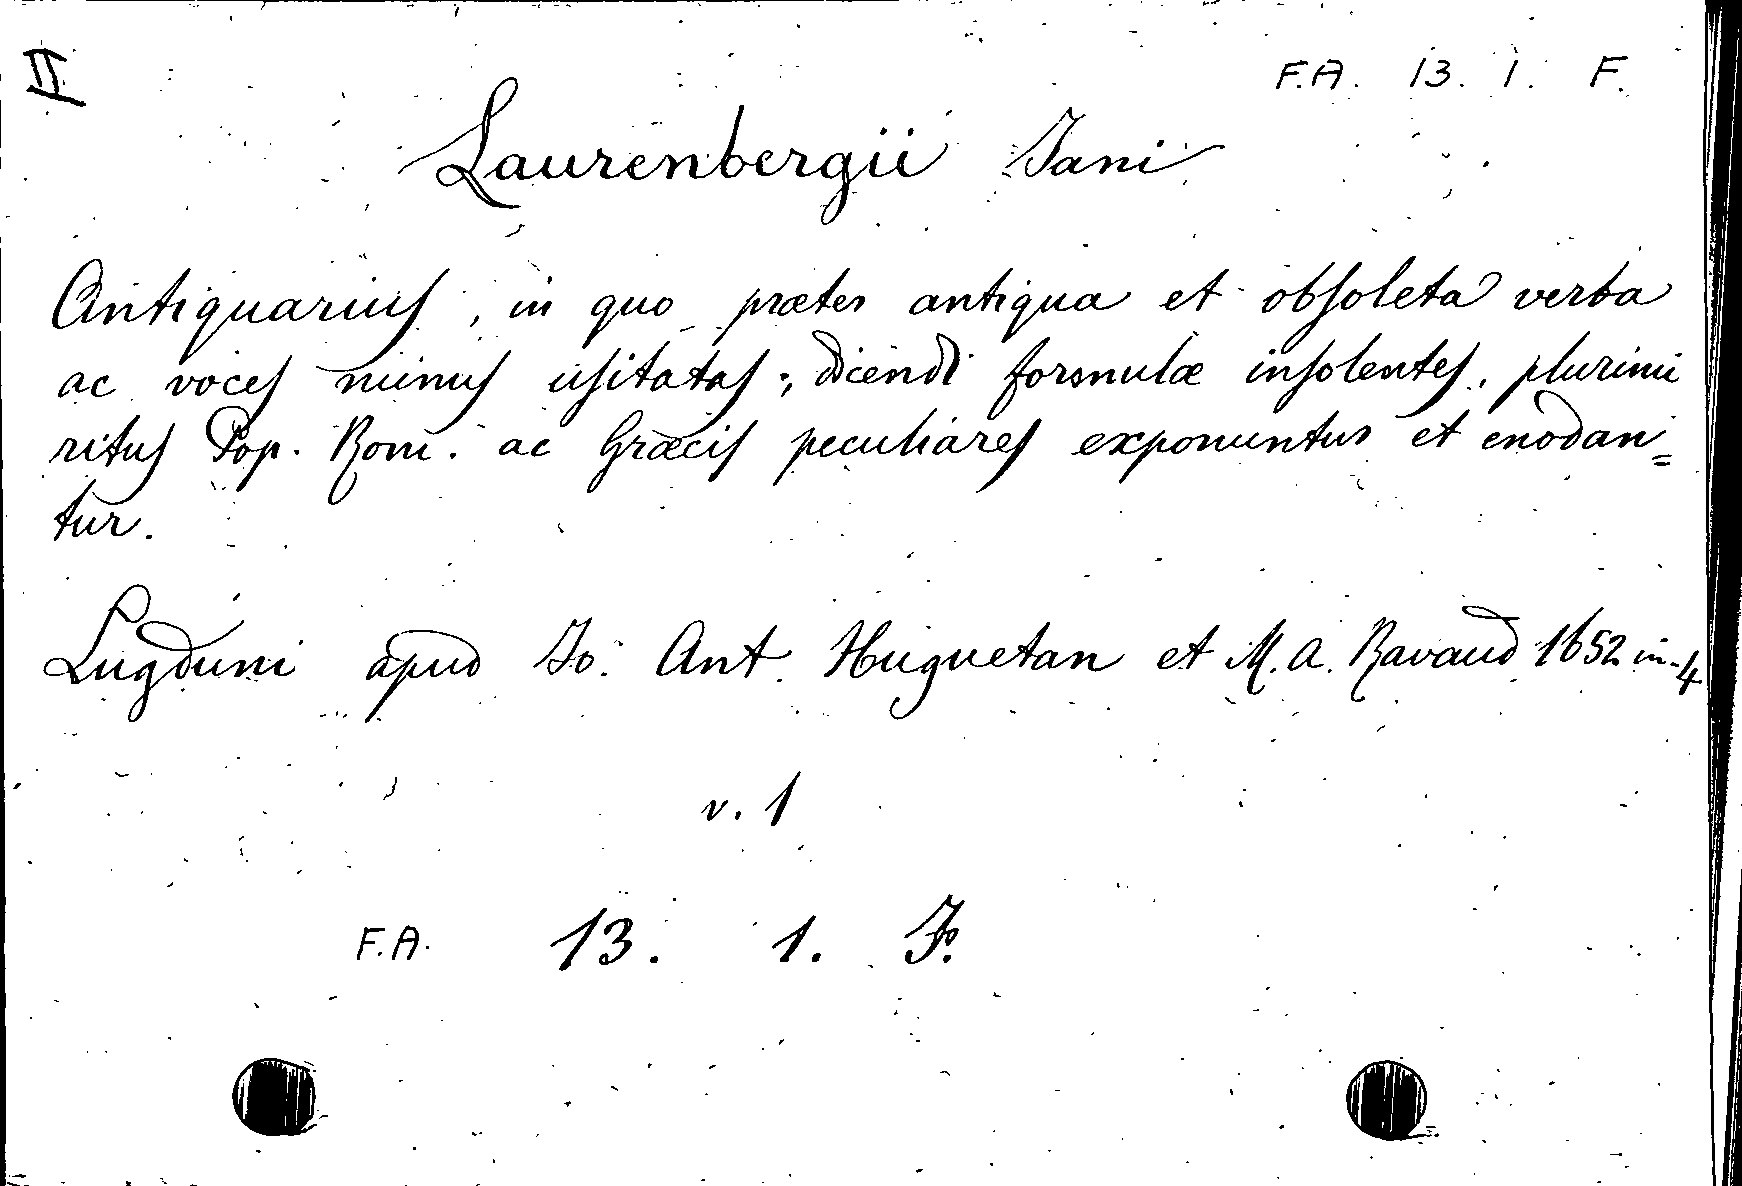 II
F.A. 13. 1. F.
Laurenbergii Jani
Antiquarius, in quo præter antiqua et obsoleta verba
ac voces minus usitatas; dicendi formulæ insolentes, plurimi
ritus Pop. Rom. ac Græcis peculiares exponuntur et enodan=
tur.
Lugduni apud Jo. Ant. Huguetan et M. A. Ravaud 1652 in-4
v. 1
F.A. 13. 1. F.